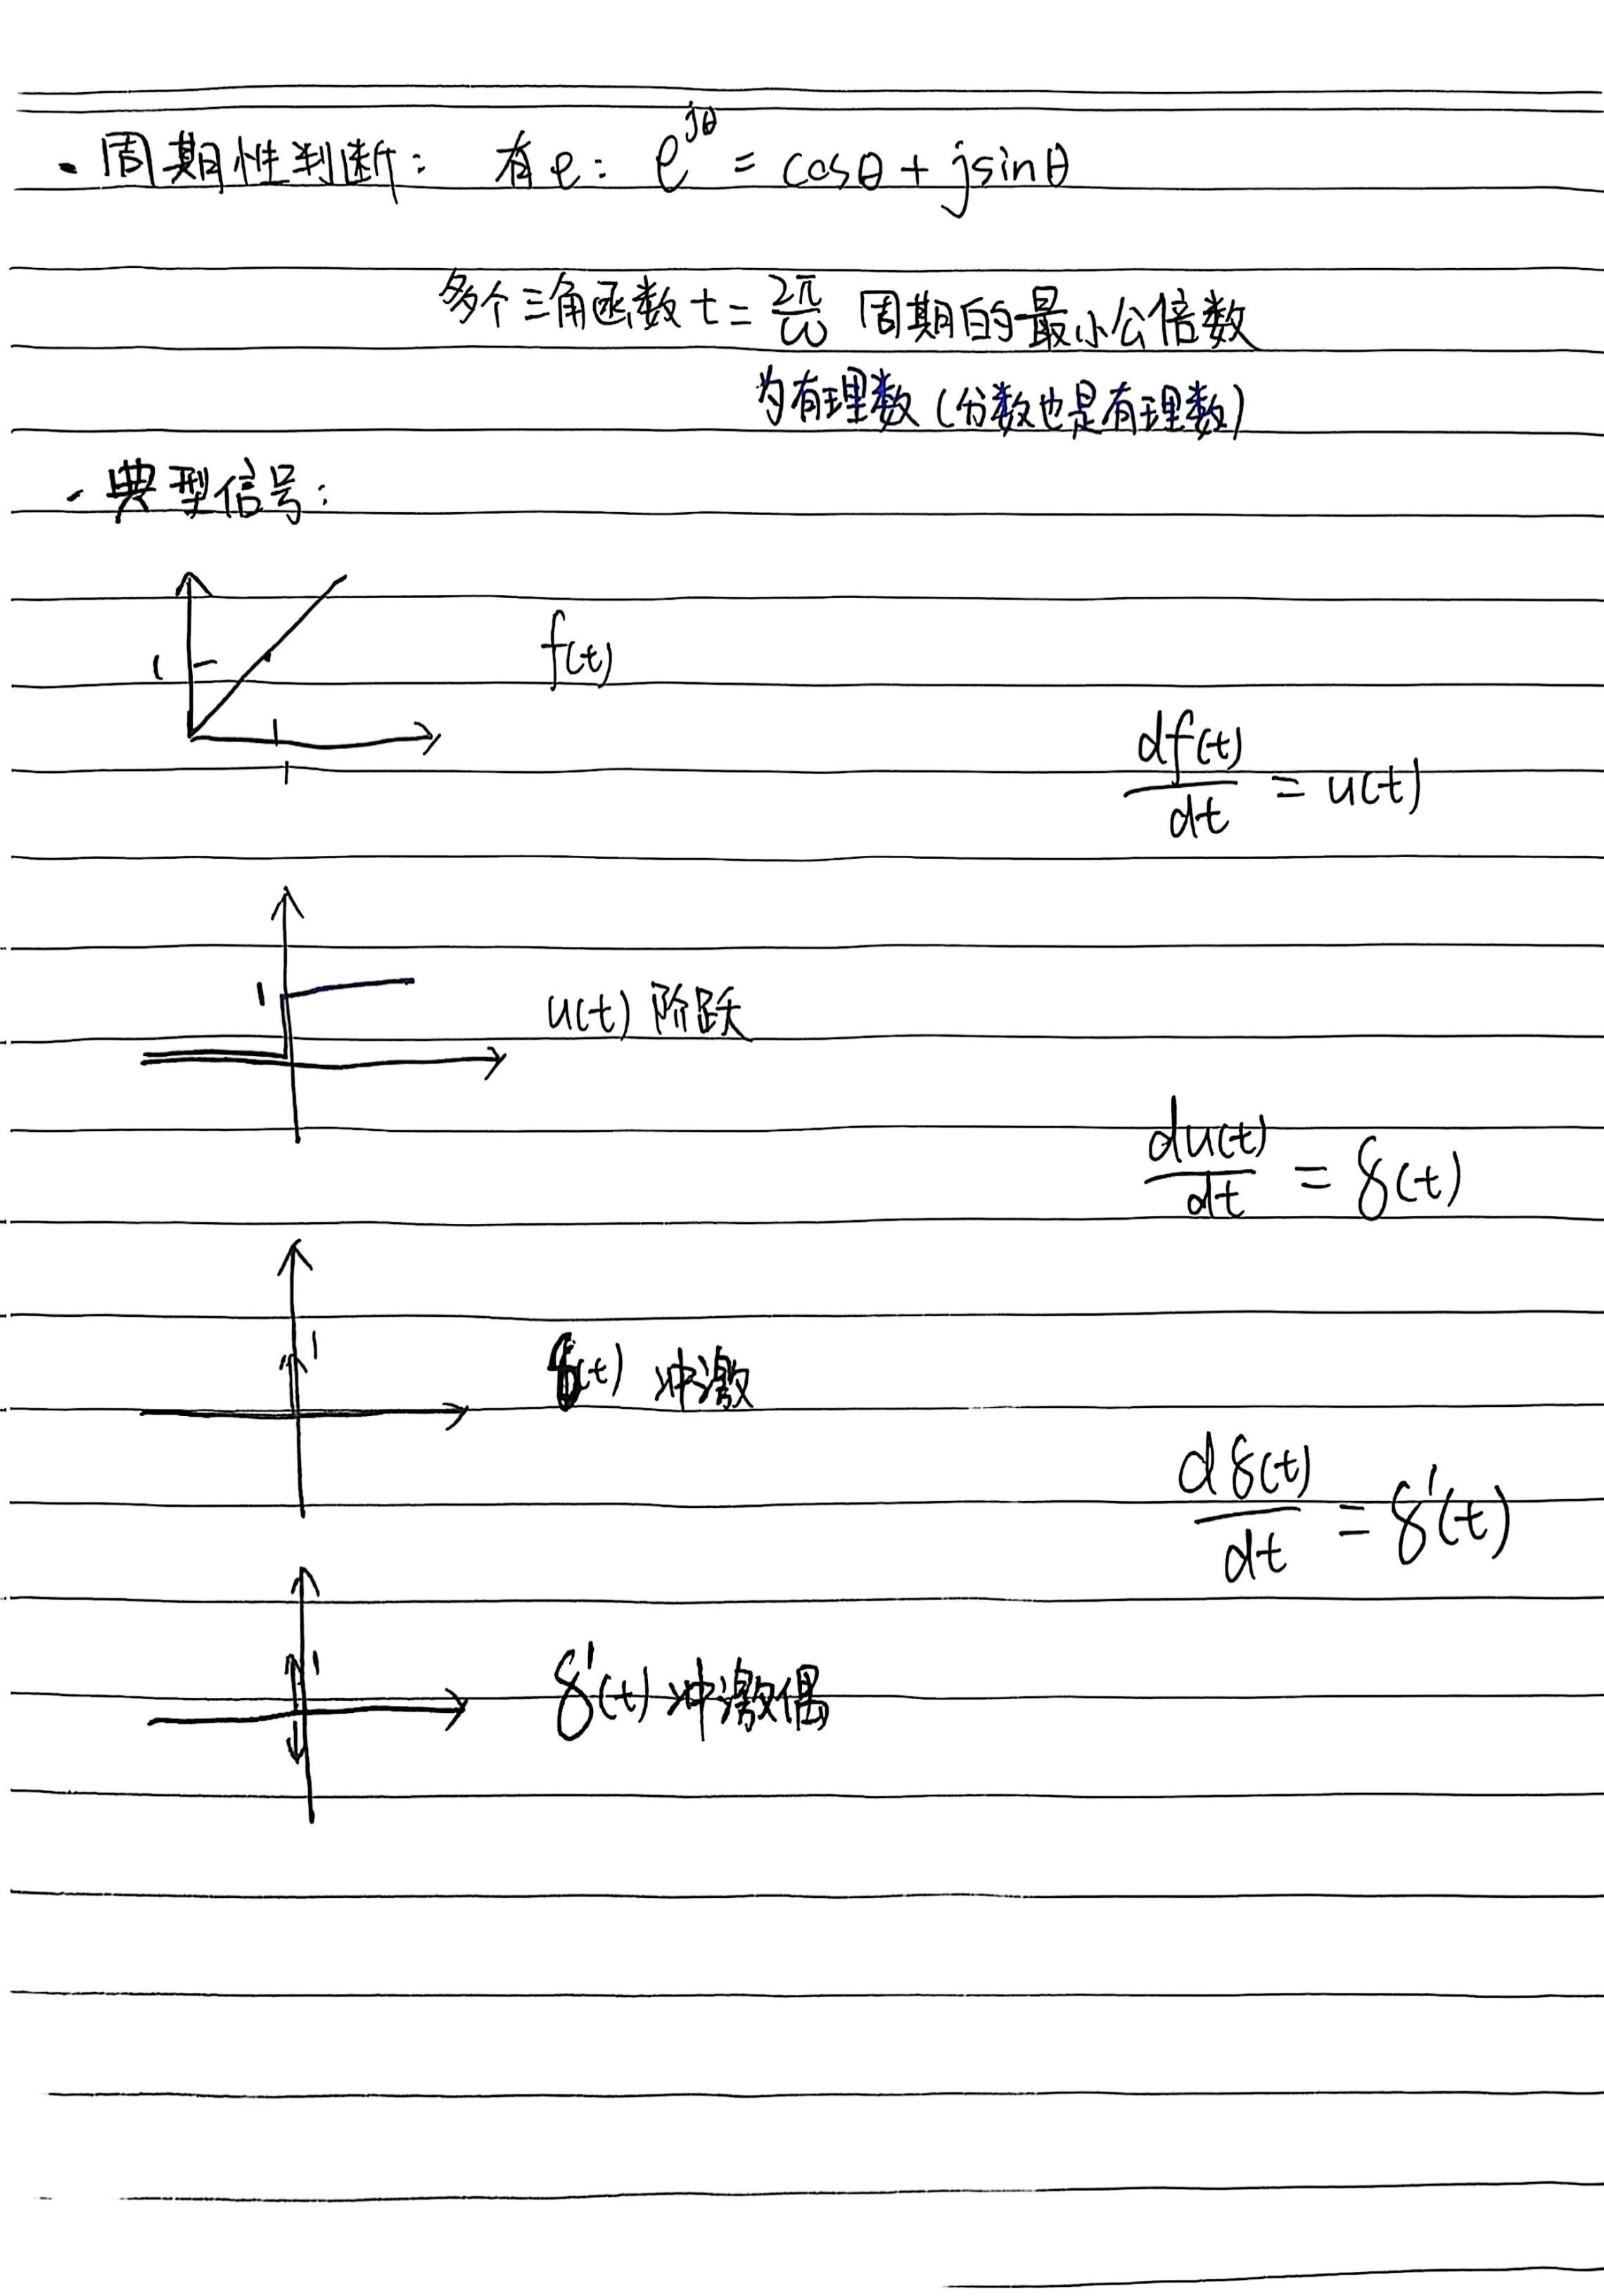 · 周期性判断: 有e: e^{jθ} = cosθ + jsinθ
多个三角函数 t = 2π/ω 周期的最小公倍数
为有理数 (分数也是有理数)
· 典型信号:
1
f(t)
1
df(t)/dt = u(t)
1
u(t) 阶跃
du(t)/dt = δ(t)
1
δ(t) 冲激
dδ(t)/dt = δ'(t)
1
δ'(t) 冲激偶